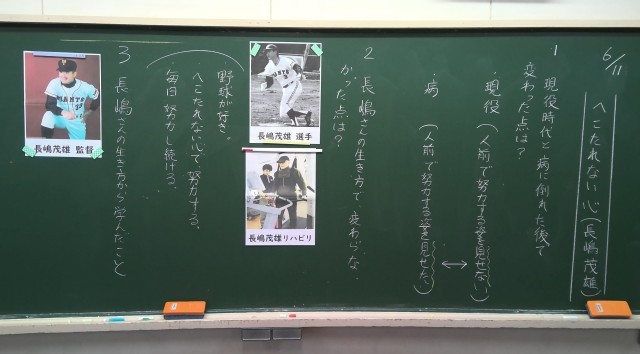 6/11
へこたれない心(長嶋茂雄)
1 現役時代と病に倒れた後で
変わった点は?
・現役(人前で努力する姿を見せない。)
↔
・病(人前で努力する姿を見せた。)
2 長嶋さんの生き方で、変わらな
かった点は?
長嶋茂雄 選手
長嶋茂雄リハビリ
野球が好き。
へこたれない心で努力する。
毎日努力し続ける。
3 長嶋さんの生き方から学んだこと
GIANTS
長嶋茂雄 監督